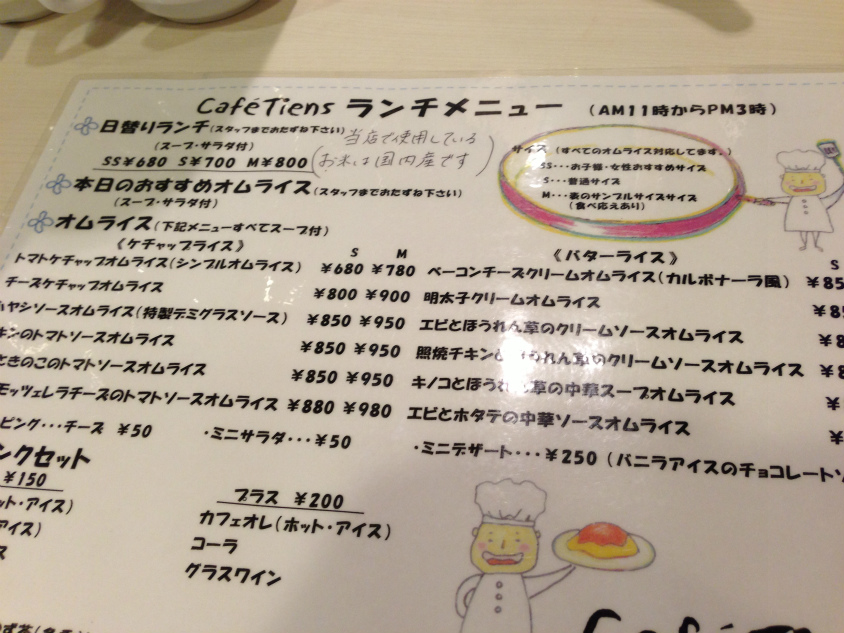 CaféTiens ランチメニュー (AM11時からPM3時)
日替りランチ(スタッフまでおたずね下さい)
(スープ・サラダ付)
SS¥680 S¥700 M¥800
(当店で使用している
お米は国内産です)
サイズ (すべてのオムライス対応してます。)
SS・・・お子様・女性おすすめサイズ
S・・・普通サイズ
M・・・表のサンプルサイズサイズ
(食べ応えあり)
本日のおすすめオムライス(スタッフまでおたずね下さい)
(スープ・サラダ付)
オムライス(下記メニューすべてスープ付)
《ケチャップライス》
S M
トマトケチャップオムライス(シンプルオムライス) ¥680 ¥780
チーズケチャップオムライス ¥800 ¥900
ハヤシソースオムライス(特製デミグラスソース) ¥850 ¥950
キンのトマトソースオムライス ¥850 ¥950
ときのこのトマトソースオムライス ¥850 ¥950
モッツェレラチーズのトマトソースオムライス ¥880 ¥980
《バターライス》
S
ベーコンチーズクリームオムライス(カルボナーラ風) ¥85
明太子クリームオムライス ¥8
エビとほうれん草のクリームソースオムライス ¥8
照焼チキンと うれん草のクリームソースオムライス ¥8
キノコとほうれん草の中華スープオムライス ¥
エビとホタテの中華ソースオムライス ¥
ピング・・・チーズ ¥50 ・ミニサラダ・・・¥50
・ミニデザート・・・¥250 (バニラアイスのチョコレートソ
ンクセット
¥150
ット・アイス)
アイス)
ス
プラス ¥200
カフェオレ(ホット・アイス)
コーラ
グラスワイン